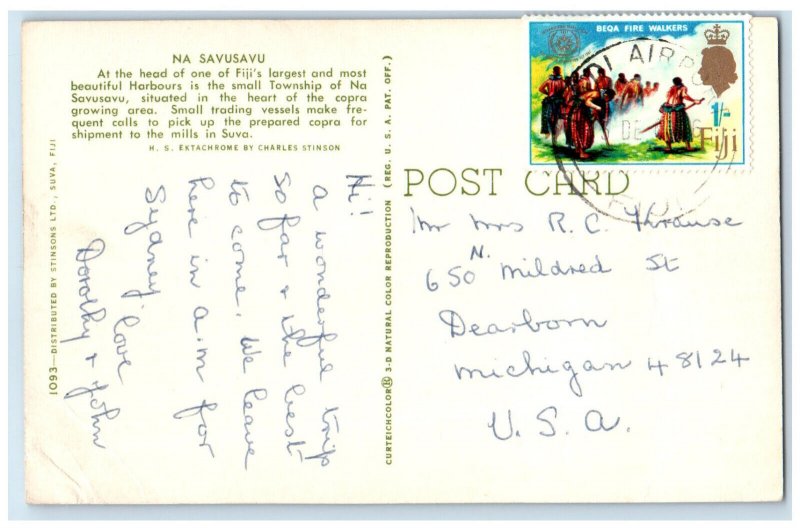 NA SAVUSAVU
At the head of one of Fiji's largest and most
beautiful Harbours is the small Township of Na
Savusavu, situated in the heart of the copra
growing area. Small trading vessels make fre-
quent calls to pick up the prepared copra for
shipment to the mills in Suva.
H. S. EKTACHROME BY CHARLES STINSON
1093—DISTRIBUTED BY STINSONS LTD., SUVA, FIJI
Hi!
a wonderful trip
so far & the best
to come. We leave
here in a.m for
Sydney love
Dorothy & John
CURTEICHCOLOR® 3-D NATURAL COLOR REPRODUCTION (REG. U. S. A. PAT. OFF.)
BEQA FIRE WALKERS
1/-
Fiji
DI AIRPO
DE
FIJI
POST CARD
Mr Mrs R. C. Krause
650 N. Mildred St
Dearborn
Michigan 48124
U. S. A.